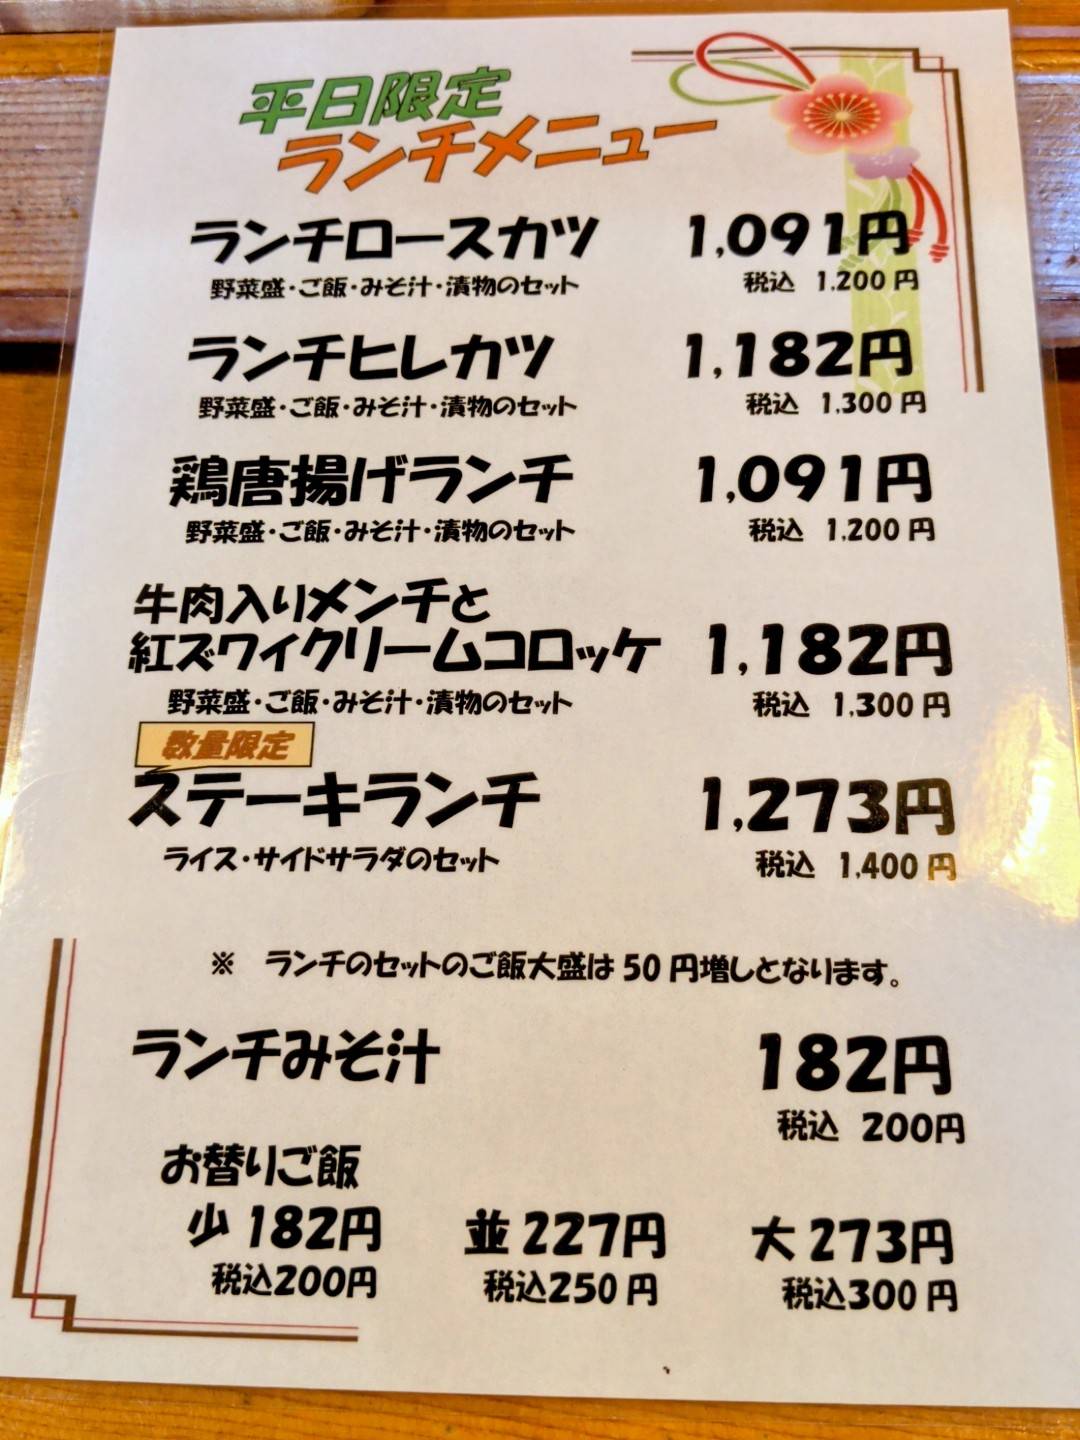 平日限定
ランチメニュー
ランチロースカツ 1,091円
野菜盛・ご飯・みそ汁・漬物のセット 税込 1,200円
ランチヒレカツ 1,182円
野菜盛・ご飯・みそ汁・漬物のセット 税込 1,300円
鶏唐揚げランチ 1,091円
野菜盛・ご飯・みそ汁・漬物のセット 税込 1,200円
牛肉入りメンチと
紅ズワイクリームコロッケ 1,182円
野菜盛・ご飯・みそ汁・漬物のセット 税込 1,300円
数量限定
ステーキランチ 1,273円
ライス・サイドサラダのセット 税込 1,400円
※ ランチのセットのご飯大盛は50円増しとなります。
ランチみそ汁 182円
税込 200円
お替りご飯
少 182円 並 227円 大 273円
税込200円 税込250円 税込300円